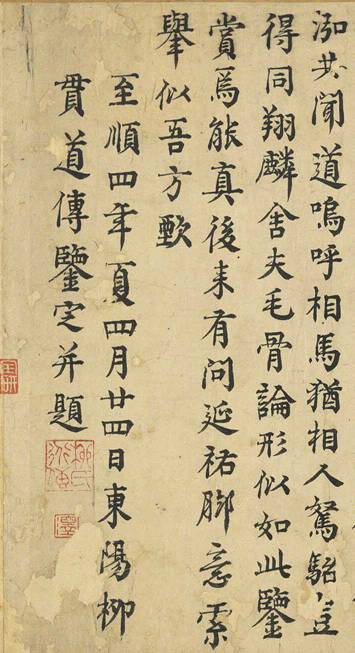 泓共聞道嗚呼相馬猶相人駑駘豈
得同翔麟舍夫毛骨論形似如此鑒
賞焉能真後来有問延祐脚意索
舉似吾方甄
至順四年夏四月廿四日東陽柳
貫道傳鑒定并題
柳氏道傳